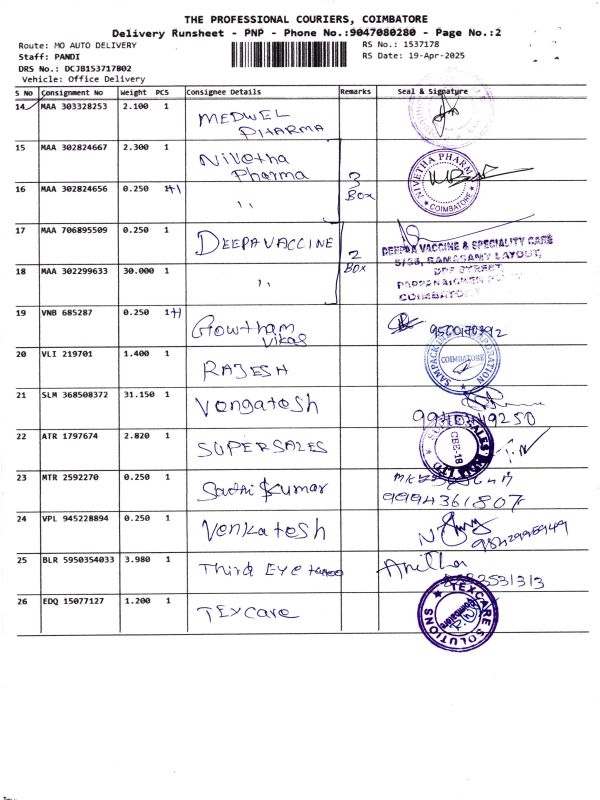 THE PROFESSIONAL COURIERS, COIMBATORE
Delivery Runsheet - PNP - Phone No.:9047080280 - Page No.:2
Route: MO AUTO DELIVERY RS No.: 1537178
Staff: PANDI RS Date: 19-Apr-2025
DRS No.: DCJB153717802
Vehicle: Office Delivery
S No Consignment No Weight PCS Consignee Details Remarks Seal & Signature
14 MAA 303328253 2.100 1 MEDWEL
PHARMA
15 MAA 302824667 2.300 1 Nivetha
Pharma
NIVETHA PHARM
COIMBATORE
3
Box
16 MAA 302824656 0.250 1+1 ,,
17 MAA 706895509 0.250 1 DEEPA VACCINE
2
BOX
DEEPAA VACCINE & SPECIALITY CARE
5/36, RAMASAMY LAYOUT,
STREET,
COIMBATORE
18 MAA 302299633 30.000 1 ,,
19 VNB 685287 0.250 1+1 Gowtham
Vikas
20 VLI 219701 1.400 1 RAJESH
COIMBATORE
21 SLM 368508372 31.150 1 Vengatesh
22 ATR 1797674 2.820 1 SUPERSALES
CBE-18
23 MTR 2592270 0.250 1 Sathi Kumar
9994361807
24 VPL 945228894 0.250 1 Venkatesh
25 BLR 5950354033 3.980 1 Third Eye Anitha
26 EDQ 15077127 1.200 1 Texcare
TEXCARE SOLUTIONS
Coimbatore